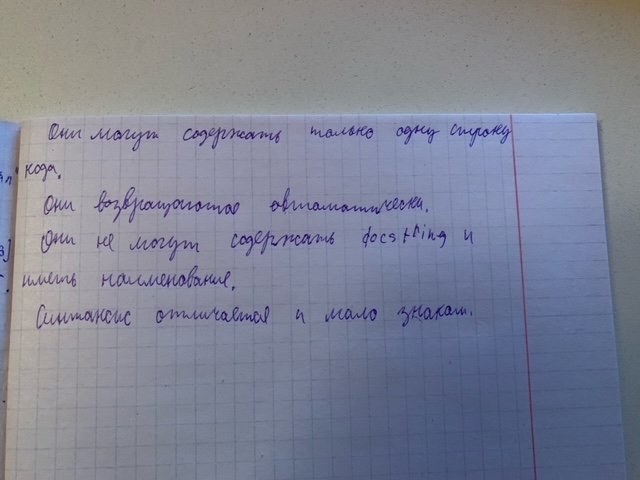 Они могут содержать только одну строку
кода.
Они возвращаются автоматически.
Они не могут содержать docstring и
иметь наименование.
Синтаксис отличается и мало знаком.